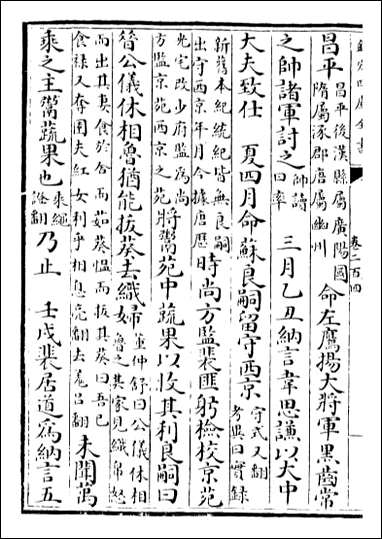 欽定四庫全書
卷二百四
昌平昌平後漢縣屬廣陽國隋屬涿郡唐屬幽州命左鷹揚大將軍黑齒常
之帥諸軍討之帥讀曰率 三月乙丑納言韋思謙以太中
大夫致仕 夏四月命蘇良嗣留守西京守式又翻考異曰實錄
新舊本紀統紀皆無良嗣出守西京年月今據唐歷時尚方監裴匪躬檢校京苑
光宅改少府監為尚方監京苑西京之苑將鬻苑中蔬果以收其利良嗣曰
昔公儀休相魯猶能拔葵去織婦董仲舒曰公儀休相魯之其家見織帛怒
而出其妻食於舍而茹葵慍而拔其葵曰吾已食祿又奪園夫紅女利乎相息亮翻去羌呂翻未聞萬
乘之主鬻蔬果也乘繩證翻乃止 壬戌裴居道為納言五